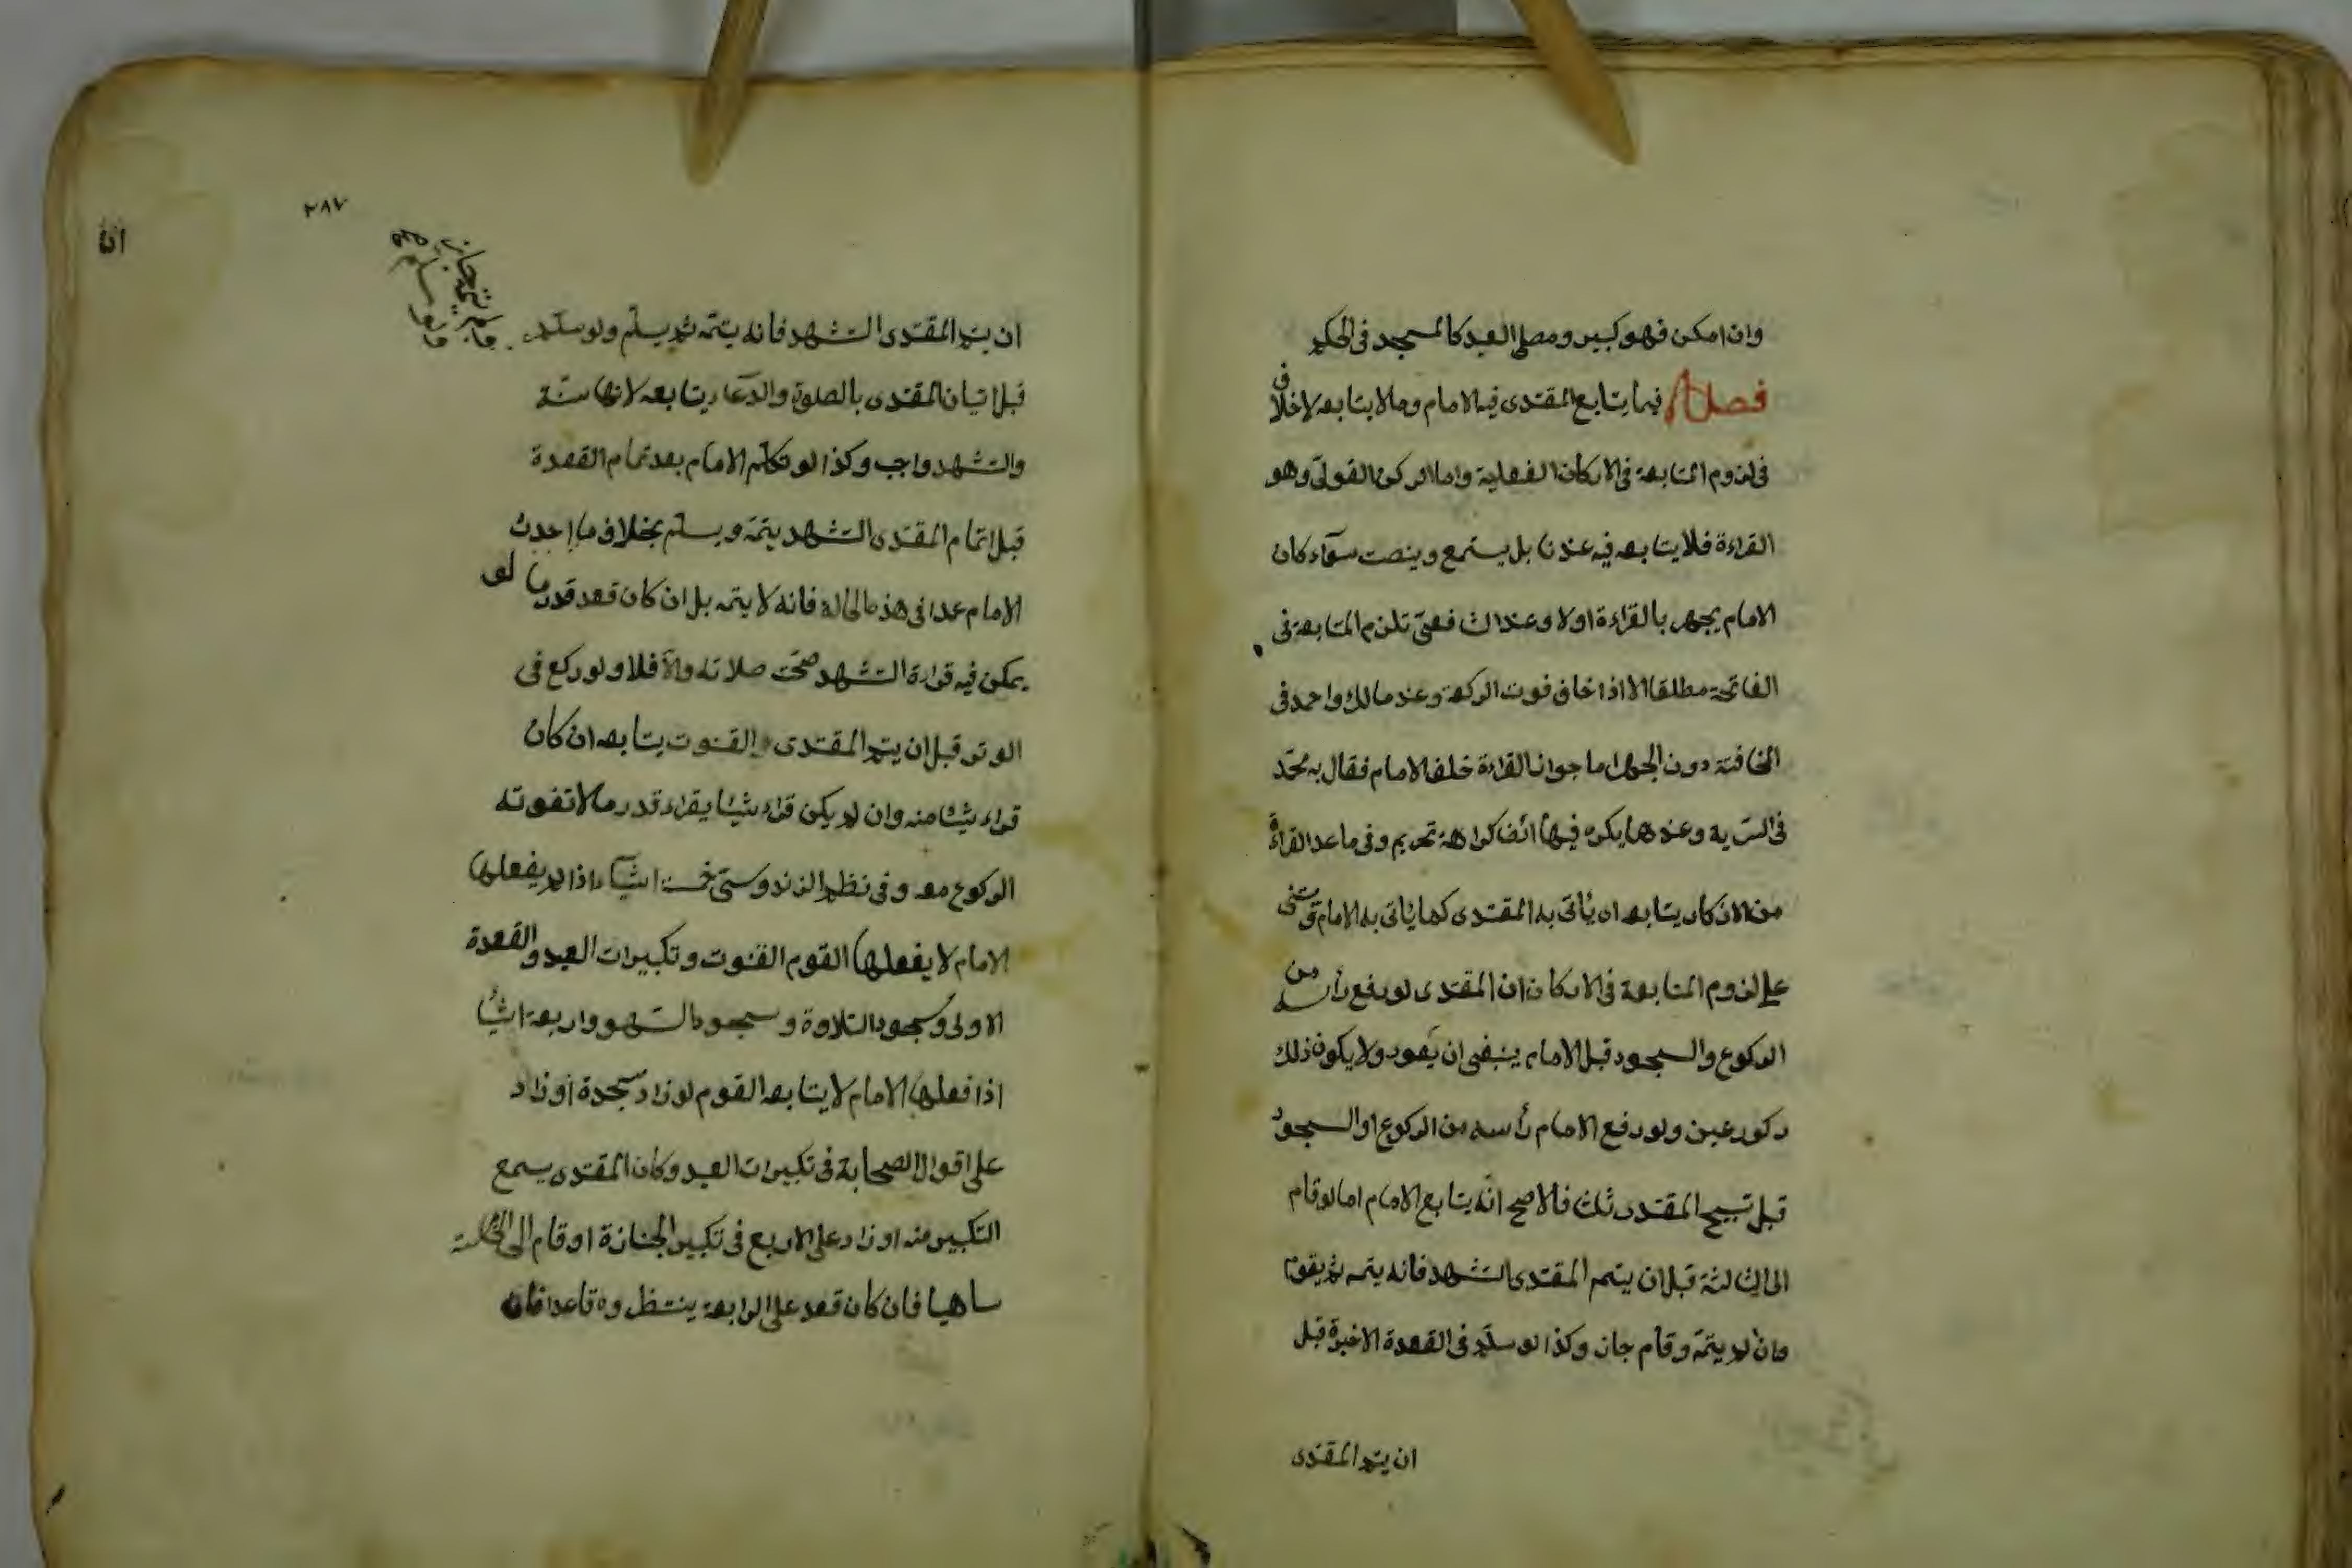 وان امكن فهو كبير ومصلى العيد كالمسجد فى الحكم
فصل فيما يتابع المقتدى فيه الامام وما لا يتابعه لا خلاف
فى لزوم المتابعة فى الاركان الفعلية واما الركن القولى وهو
القراءة فلا يتابعه فيه عندنا بل يستمع وينصت سوآء كان
الامام يجهر بالقراءة اولا وعند الشافعى تلزم المتابعة فى
الفاتحة مطلقا الا اذا خاف فوت الركعة وعند مالك واحمد فى
المخافتة دون الجهر اما جواز القراءة خلف الامام فقال به محمد
فى السرية وعندهما يكره فيها ايضا كراهة تحريم وفى ما عدا القراءة
من الاذكار يتابعه اى يأتى به المقتدى كما يأتى به الامام
على لزوم المتابعة فى الاركان ان المقتدى لو رفع رأسه من
الركوع والسجود قبل الامام ينبغى ان يعود ولا يكون ذلك
ركوعين ولو رفع الامام رأسه من الركوع او السجود
قبل تسبيح المقتدى ثلث فالاصح انه يتابع الامام اما لو قام
الى الثالثة قبل ان يتم المقتدى التشهد فانه يتمه ثم يقوم
وان لم يتمه وقام جاز وكذا لو سلم فى القعدة الاخيرة قبل
ان يتم المقتدى
٢٨٧
ان يتم المقتدى التشهد فانه يتمه ثم يسلم ولو سلم
قبل اتيان المقتدى بالصلوة والدعاء يتابعه لانها سنة
والتشهد واجب وكذا لو تكلم الامام بعد تمام القعدة
قبل اتمام المقتدى التشهد يتمه ويسلم بخلاف ما احدث
الامام عمدا فى هذه الحالة فانه لا يتمه بل ان كان قعد قدر ما لو
يمكن فيه قراءة التشهد صحت صلاته والا فلا ولو ركع فى
الوتر قبل ان يتم المقتدى القنوت يتابعه ان كان
قراء شيئا منه وان لم يكن قراء شيئا يقراء قدر ما لا تفوته
الركوع معه وفى نظم الزندوستى خمسة اشياء اذا لم يفعلها
الامام لا يفعلها القوم القنوت وتكبيرات العيد والقعدة
الاولى وسجود التلاوة وسجود السهو واربعة اشيا
اذا فعلها الامام لا يتابعه القوم لو زاد سجدة او زاد
على اقوال الصحابة فى تكبيرات العيد وكان المقتدى يسمع
التكبير منه او زاد على الاربع فى تكبير الجنازة او قام الى الخامسة
ساهيا فان كان قعد على الرابعة ينتظروه قاعدا فان